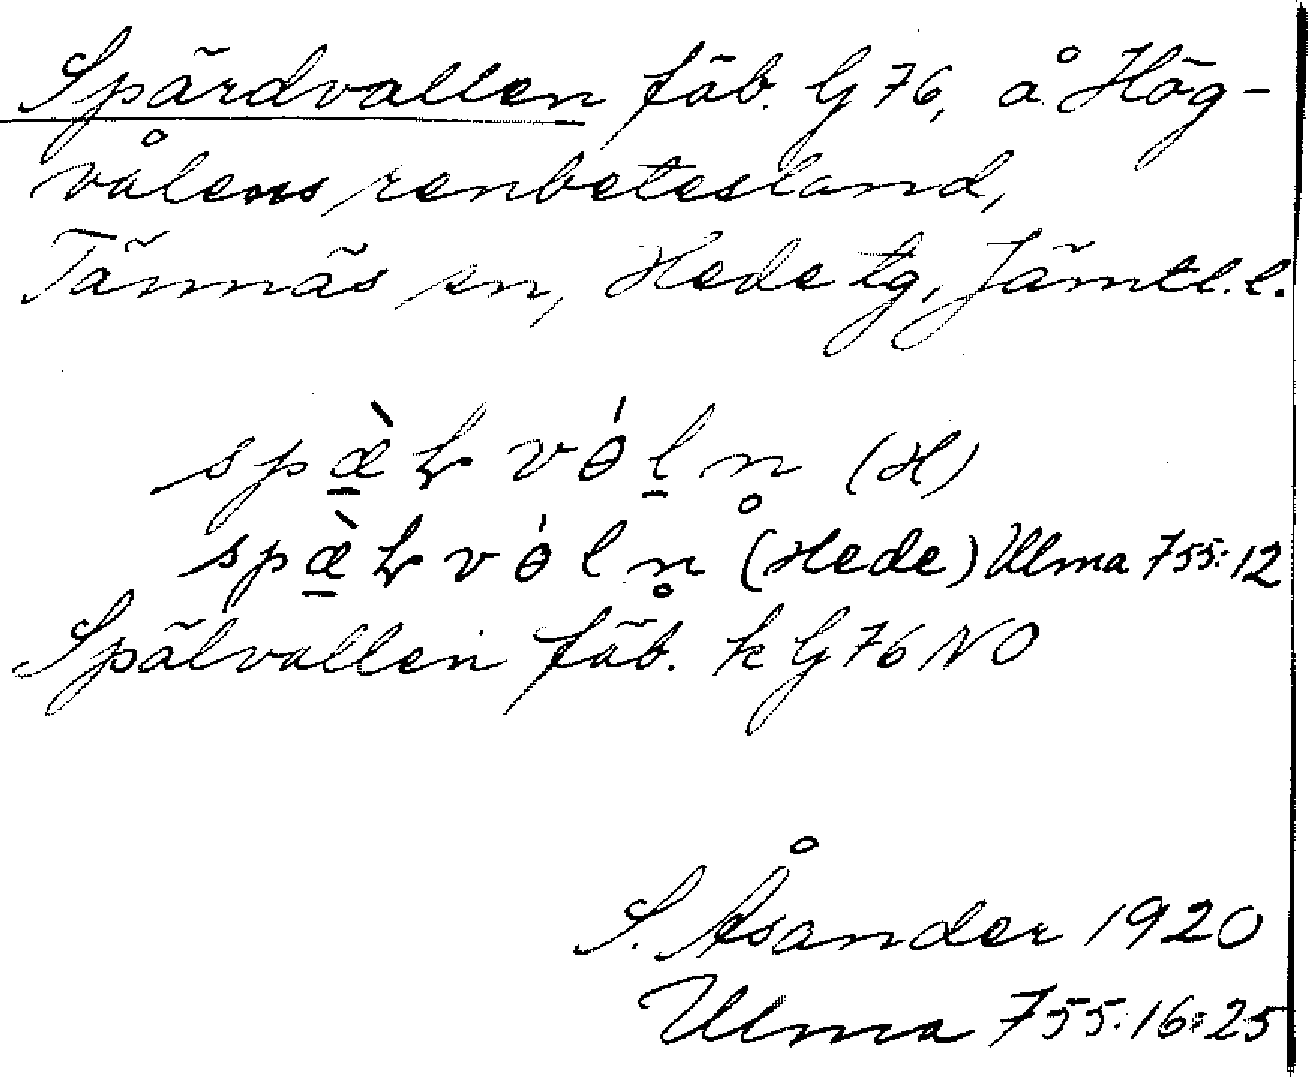 Spärdvallen fäb. G 76, å Hög-
vålens renbetesland,
Tännäs sn, Hede tg, Jämtl. l.
(H)
(Hede) Ulma 755:12
Spälvallen fäb. k G 76 NO
S. Åsander 1920
Ulma 755:16:25